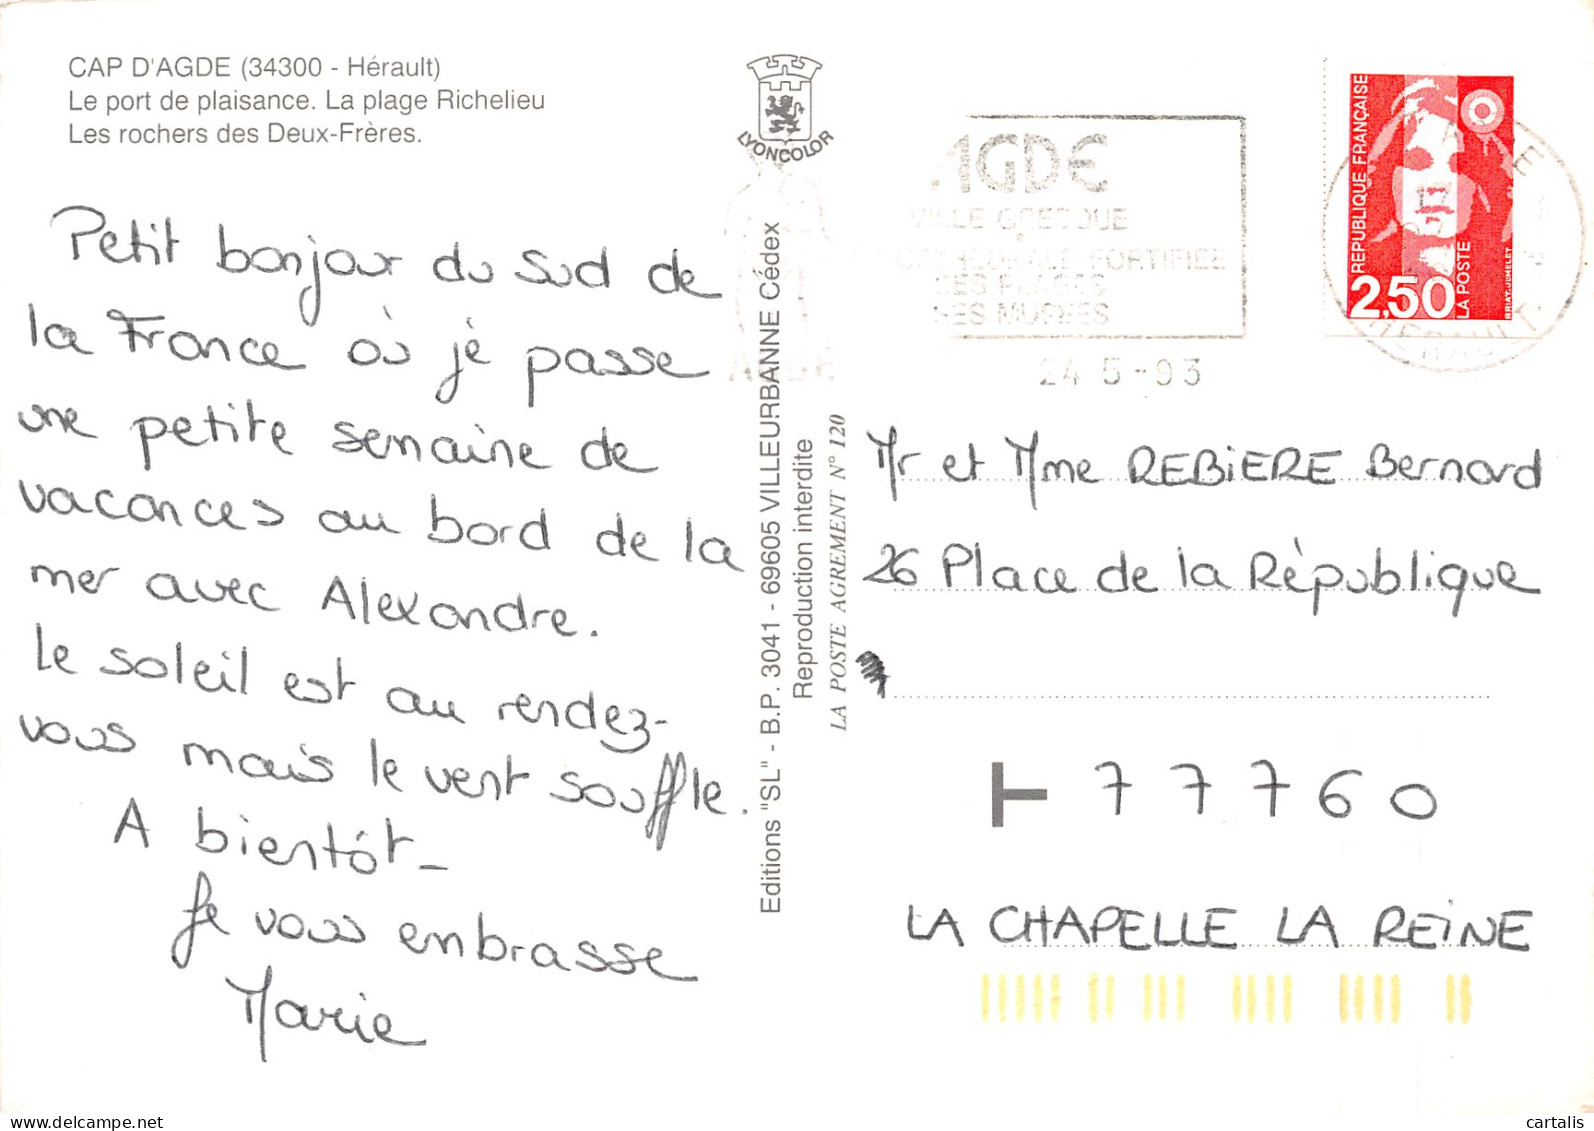 CAP D'AGDE (34300 - Hérault)
Le port de plaisance. La plage Richelieu
Les rochers des Deux-Frères.
LYONCOLOR
Petit bonjour du Sud de
la France où je passe
une petite semaine de
vacances au bord de la
mer avec Alexandre.
Le soleil est au rendez-
vous mais le vent souffle.
A bientôt_
Je vous embrasse
Marie
Editions "SL" - B.P. 3041 - 69605 VILLEURBANNE Cédex
Reproduction interdite
LA POSTE AGREMENT N° 120
AGDE
VILLE GRECQUE
CATHEDRALE FORTIFIEE
SES PLAGES
SES MUSEES
24 5-93
REPUBLIQUE FRANÇAISE
2,50
LA POSTE
BRIAT-JUMELET
Mr et Mme REBiERE Bernard
26 Place de la Rèpublique
T 77760
LA CHAPELLE LA REiNE
cartalis